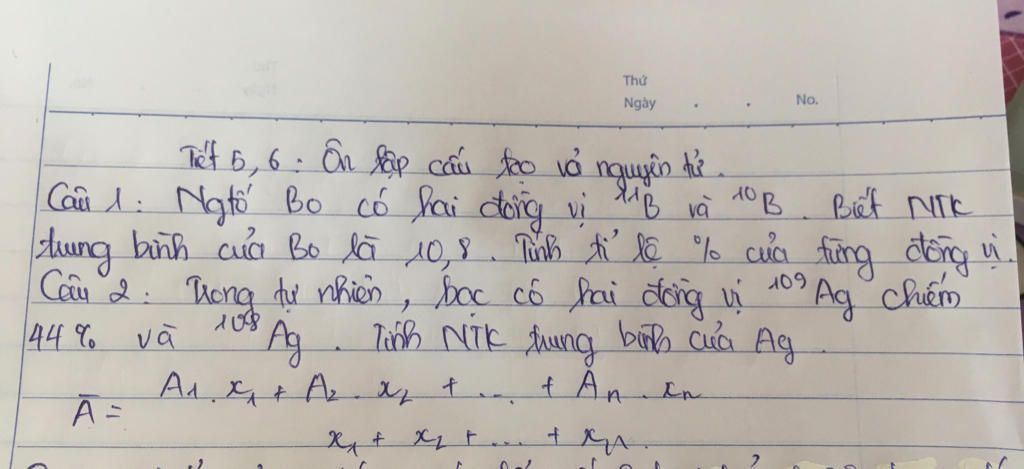 Thứ
Ngày . . No.
Tiết 5, 6 : Ôn tập cấu tạo vỏ nguyên tử.
Câu 1 : Ngtố Bo có hai đồng vị ¹¹B và ¹⁰B . Biết NTK
trung bình của Bo là 10,8 . Tính tỉ lệ % của từng đồng vị.
Câu 2 : Trong tự nhiên , bạc có hai đồng vị ¹⁰⁹Ag chiếm
44% và ¹⁰⁸Ag . Tính NTK trung bình của Ag .
A₁ . x₁ + A₂ . x₂ + ... + Aₙ . xₙ
Ā =
x₁ + x₂ + ... + xₙ .